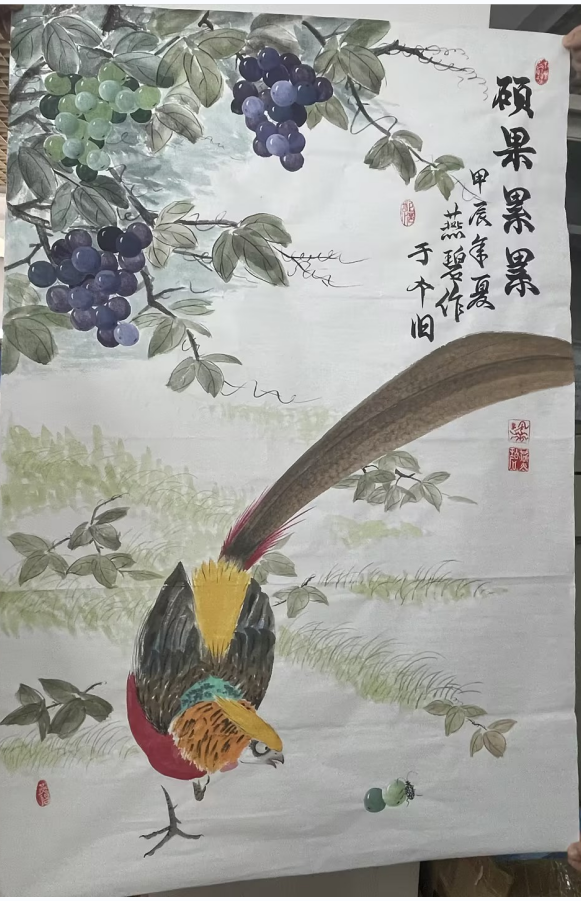 硕果累累
甲辰年夏
燕碧作
于本旧